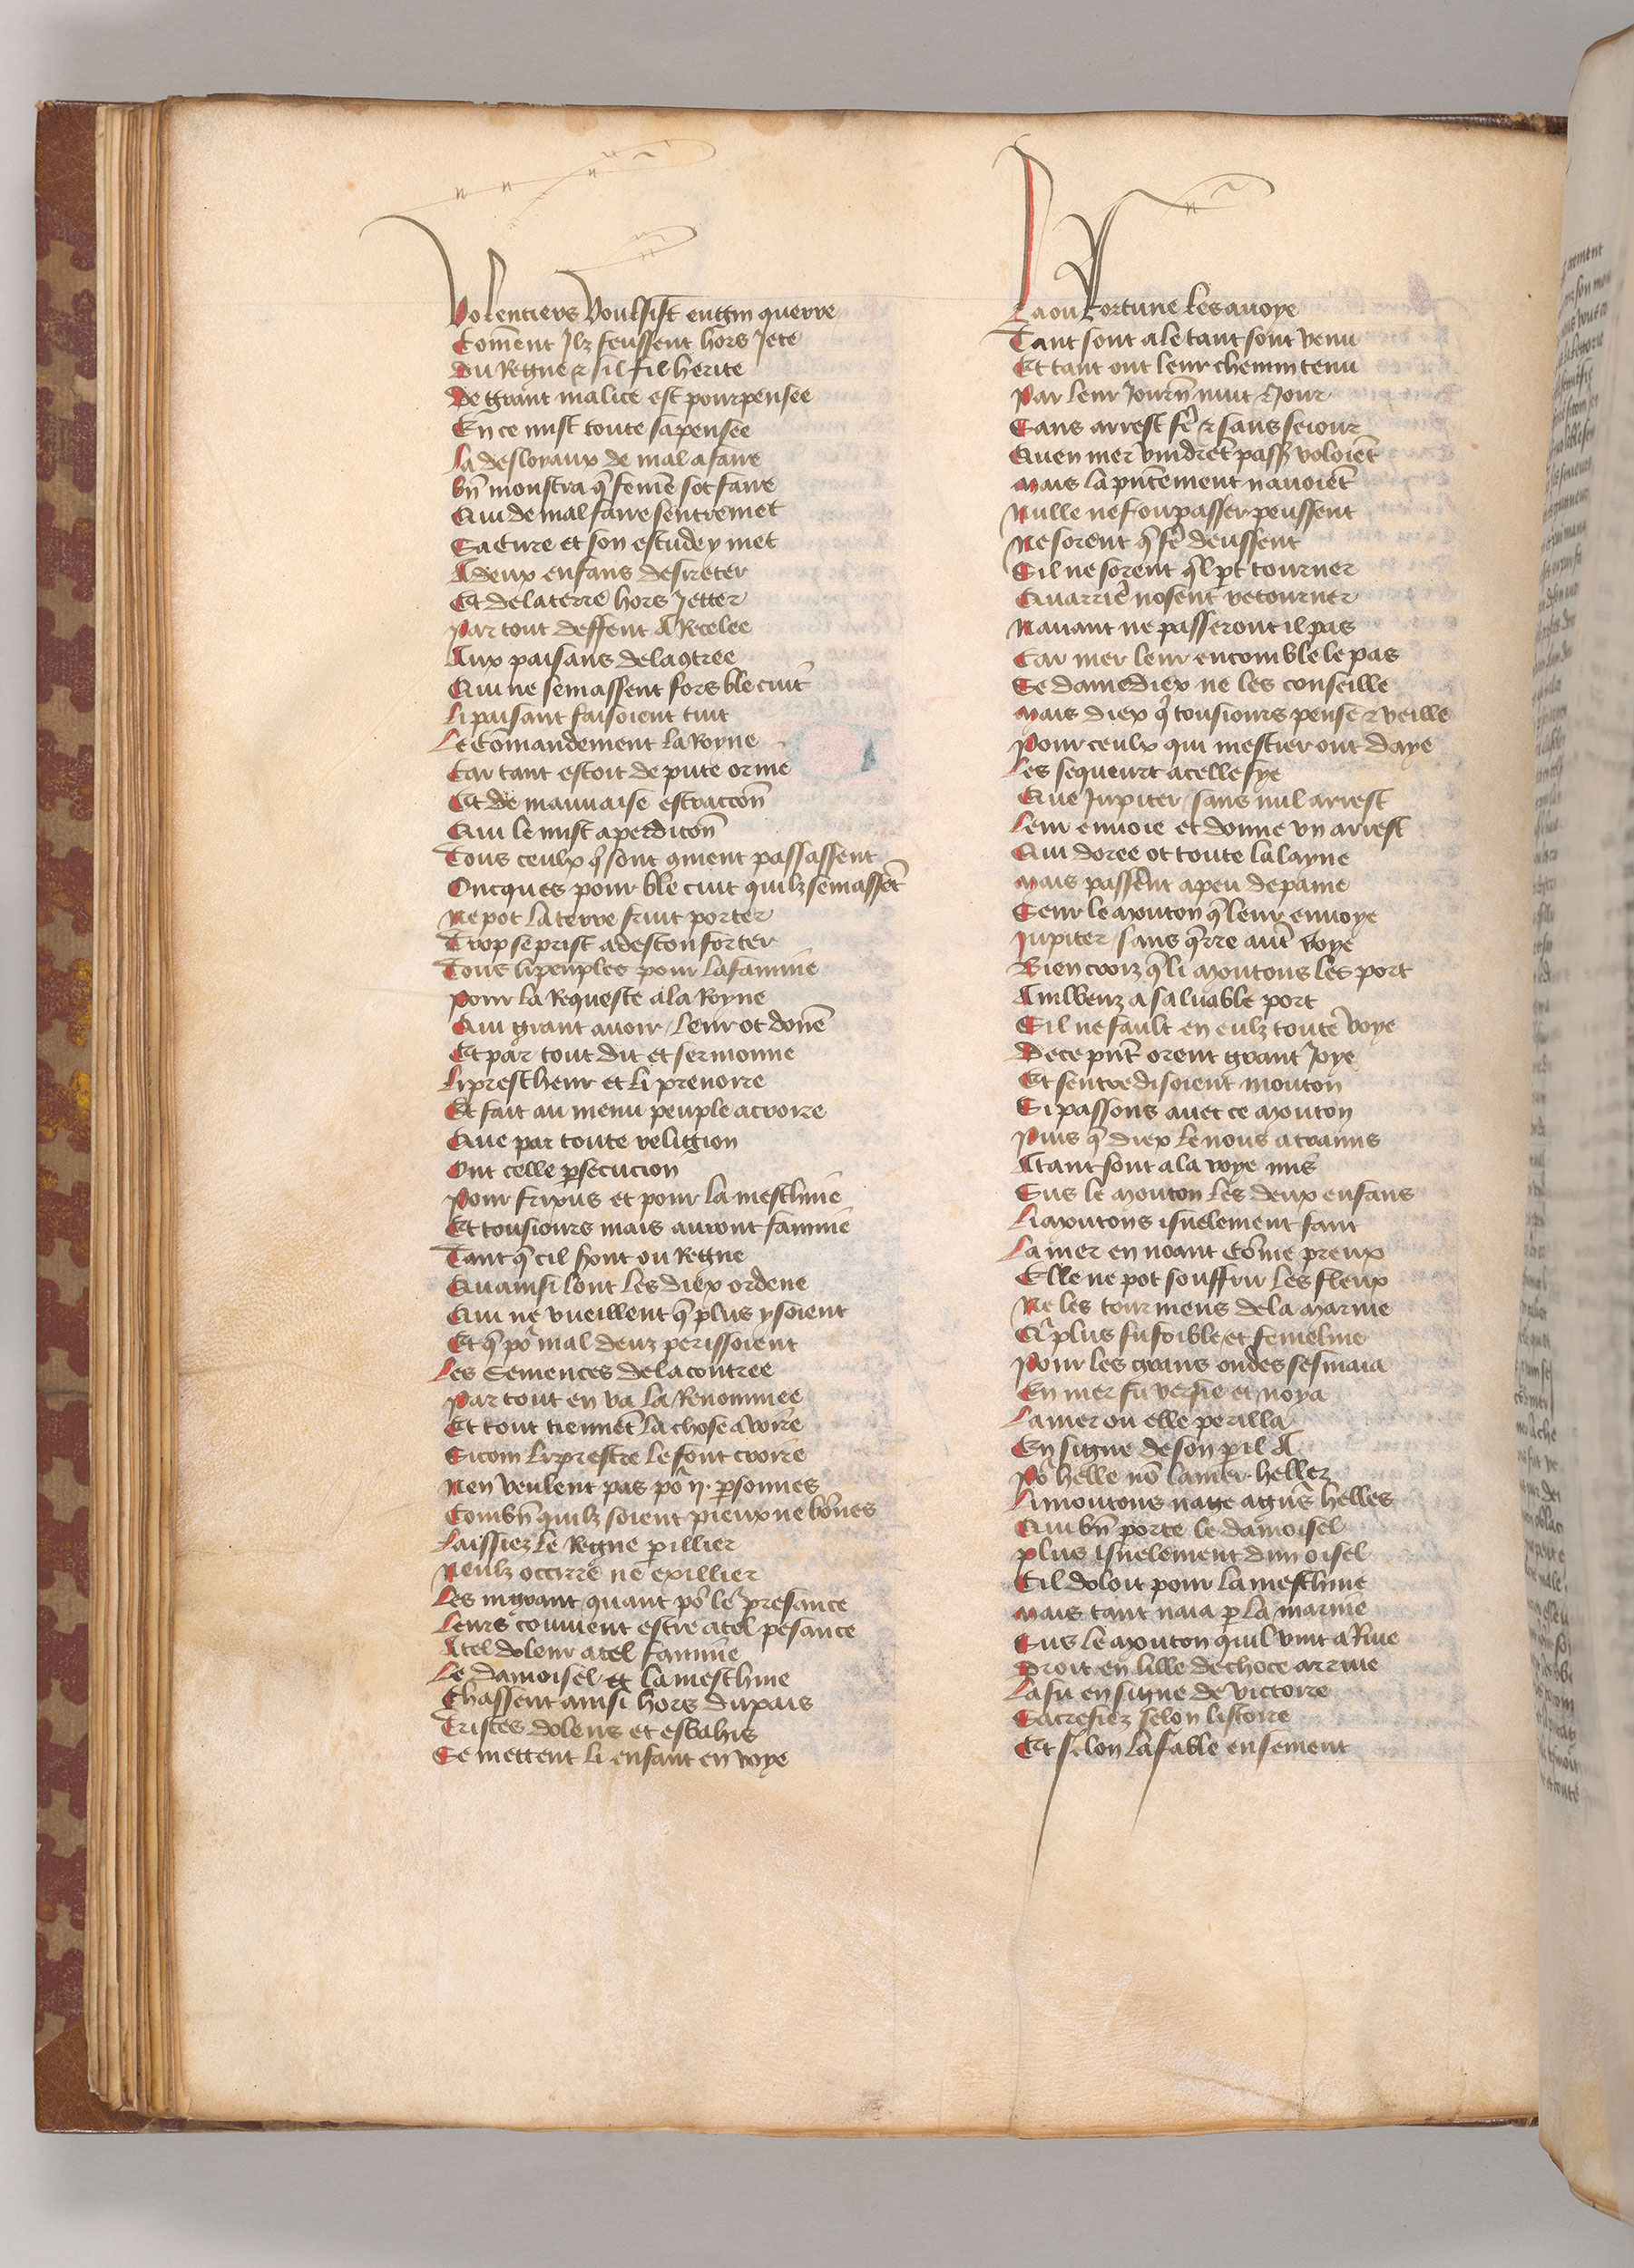 Volentiers voulsist engin querre
Com̃ent Ilz feussent hors Jete
Du Regne & sil fil herite
De grant malice est pourpensee
En ce mist toute sa pensee
La desloyaux de mal a faire
bñ monstra q̃ fem̃e scet faire
Qui de mal faire sentremet
Sa Cure et son estude y met
A deux enfans desireter
Et de la terre hors Jetter
Par tout deffent A Recelee
Aux paisans de la 9tree
Qui ne semassent fors ble cuit
Li paisant faisoient tuit
Le Com̃andement la Royne
Car tant estoit de pute orine
Et de mauuaise estraccon̄
Qui le mist a perdicon̄
Tous ceulx q̃ sont 9ment passassent
Oncques pour ble cuit quilz semassẽt
Ne pot la terre fruit porter
Trop se prist a desconforter
Tous li peuples pour la famine
Pour la Requeste a la Royne
Qui grant auoir leur ot don̄e
Et par tout dit et sermonne
Li prescheur et li prenoire
Et fait au menu peuple acroire
Que par toute religion
Ont celle p̱secucion
Pour frixus et pour la meschine
Et tousiours mais auront famine
Tant q̃ cil s̱ont ou Regne
Quainsi lont les diex ordene
Qui ne vueillent q̃ plus y soient
Et q̃ po᷑ mal deuz perissoient
Les Semences de la contree
Par tout en va la Renommee
Et tout tiennẽt la chose a voire
Sicom li prestre le font croire
Nen veulent pas po᷑ ij. p̱sonnes
Combñ quilz soient pieux ne bon̄es
Laissiez le Regne p̱illier
Neulz occirre ne exillier
Les  quant po᷑ le᷑ presance
Leurs couuient estre a tel pesance
A tel doleur a tel famine
Le damoisel & la meschine
Chassent ainsi hors du pais
Tristes dolens et esbahis
Se mettent li enfant en voye
La ou fortune les auoye
Tant sont ale tant sont venu
Et tant ont leur chemin tenu
Par leur Journ̄ nuit & Jour
Sans arrest fẽ & sans seiour
Quen mer vindrẽt pass̱ voloiẽt
Mais la pñtement nauoiẽt
Nulle nef ou passer peussent
Ne sorent q̃ fẽ deussent
Cil ne sorent q̃l p̱t tourner
Quarriẽ nosent retourner
Nauant ne passeront il pas
Car mer leur encomble le pas
Se damediex ne les conseille
Mais diex q̃ tousiours pense & veille
Pour ceulx qui mestier ont daye
Les sequeurt a celle fye
Que Jupiter sans nul arrest
Leur enuoie et donne vn arrest
Qui doree ot toute la layne
Mais passẽnt a peu de paine
Seur le mouton q̃ leur enuoye
Jupiter sans q̃rre aut᷑ voye
Bien croiz q̃ li moutons les port
 a saluable port
Cil ne fault en eulz toute voye
De ce pñt orent grant Joye
Et sentredisoient mouton
Si passons auec ce mouton
Puis q̃ diex le nous a tramis
Atant sont a la voye mis
Sus le mouton les deux enfans
Li moutons isnelement fant
La mer en noant Com̃e preux
Elle ne pot souffrir les fleux
Ne les tourmens de la marine
Q᷑ plus fu foible et femeline
Pour les grans ondes sesmaia
En mer fu versie et noya
La mer ou elle perilla
En signe de son p̱il A
Po᷑ helle nõ la mer hellez
Li moutons nage  helles
Qui bñ porte le damoisel
Plus isnelement dun oisel
Cil doloit pour la meschine
Mais tant naia p̱ la marine
Sus le mouton quil vint a Riue
Droit en lille de choce arriue
La fu en signe de victoire
Sacrefiez selon listoire
Et selon la fable ensement